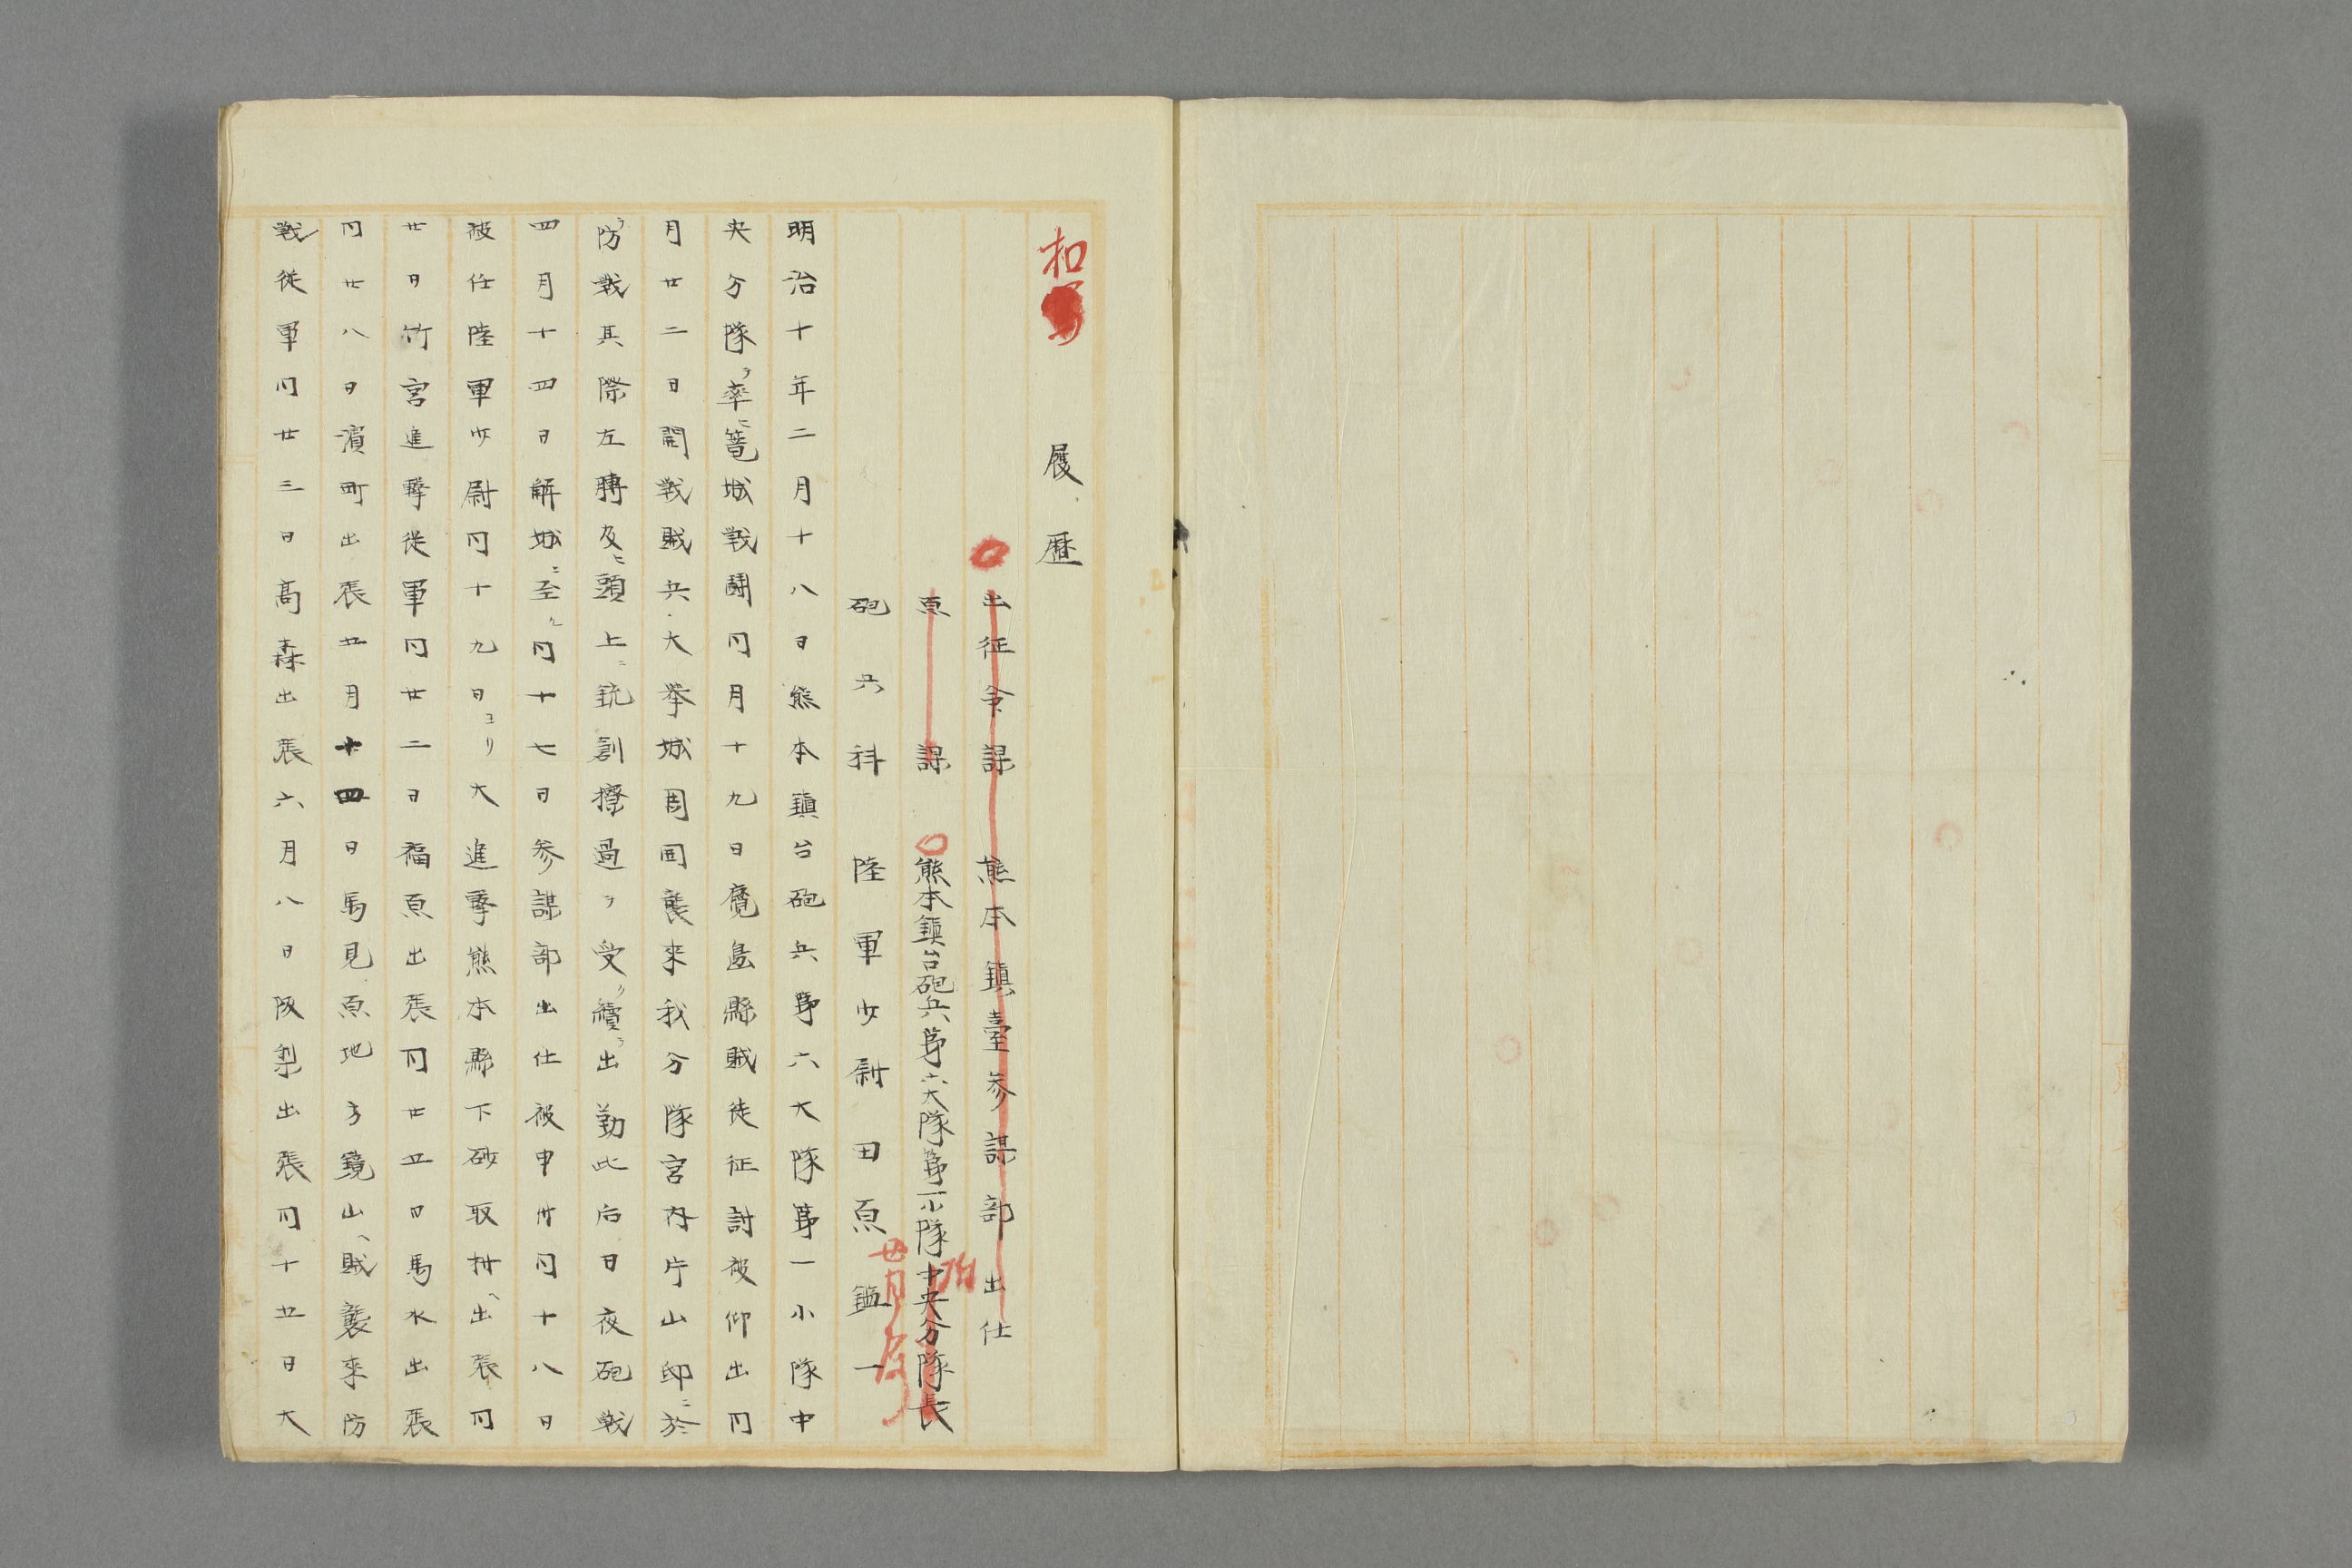 扣
履歴
出征令課 熊本鎮臺参謀部出仕
原課 熊本鎮台砲兵第六大隊第一小隊中央分隊長
砲兵科 陸軍少尉 田原鎰一
明治十年二月十八日熊本鎮台砲兵第六大隊第一小隊中
央分隊ヲ率ヒ篭城戦闘同月十九日麑島縣賊徒征討被仰出同
月廿二日開戦賊兵大挙城周囲襲来我分隊宮内片山邸ニ於
テ防戦其際左膊及ヒ頭上ニ銃創擦過ヲ受ク續テ出勤此后日夜砲戦
四月十四日解城ニ至ル同十七日参謀部出仕被申付同十八日
被任陸軍少尉同十九日ヨリ大進撃熊本縣下砂取村ヘ出張同
廿日竹宮進撃従軍同廿二日福原出張同廿五日馬水出張
同廿八日濱町出張五月十四日馬見原地方鏡山ヘ賊襲来防
戦従軍同廿三日高森出張六月八日坂梨出張同十五日大